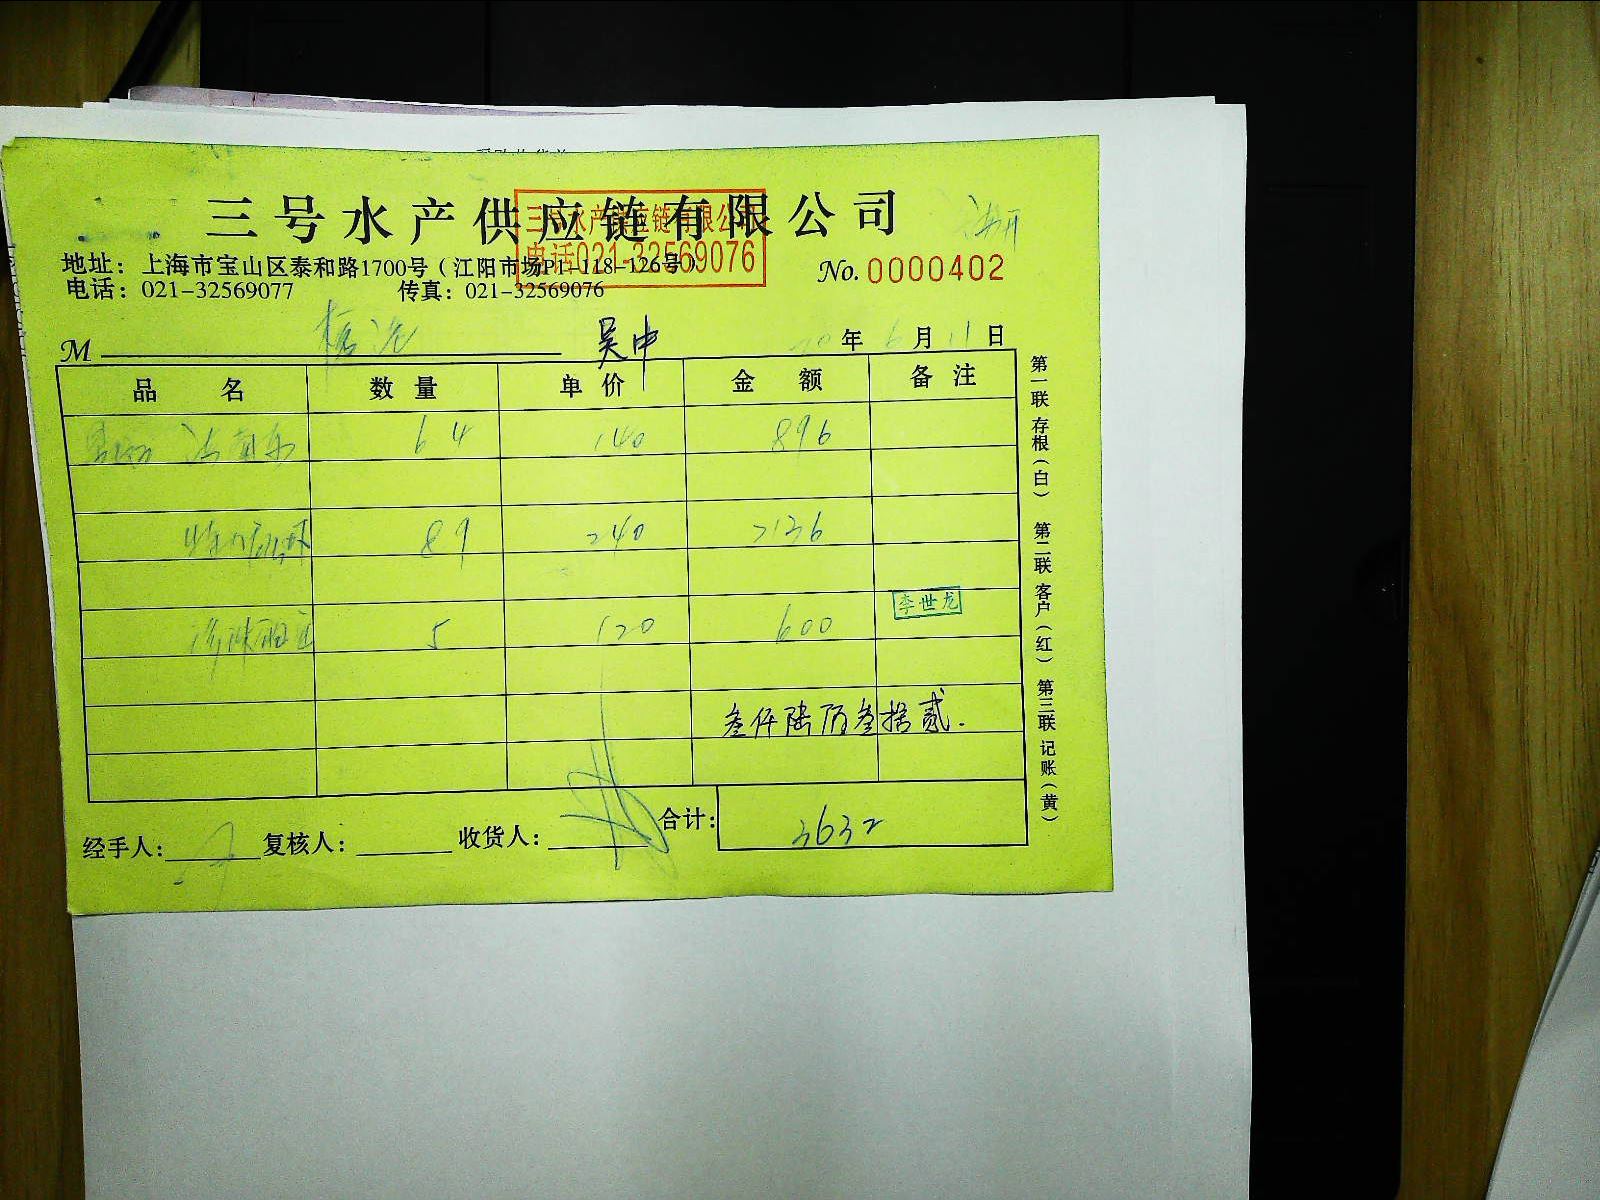 三号水产供应链有限公司
三号水产供应链有限公司
电话021-32569076
地址：上海市宝山区泰和路1700号（江阳市场P1-118-126号）
No. 0000402
电话：021-32569077 传真：021-32569076
M 吴中 20年6月11日
品名 数量 单价 金额 备注
64 140 896
89 240 2136
李世龙
5 120 600
叁仟陆佰叁拾贰.
经手人： 复核人： 收货人： 合计： 3632
第一联 存根（白） 第二联 客户（红） 第三联 记账（黄）